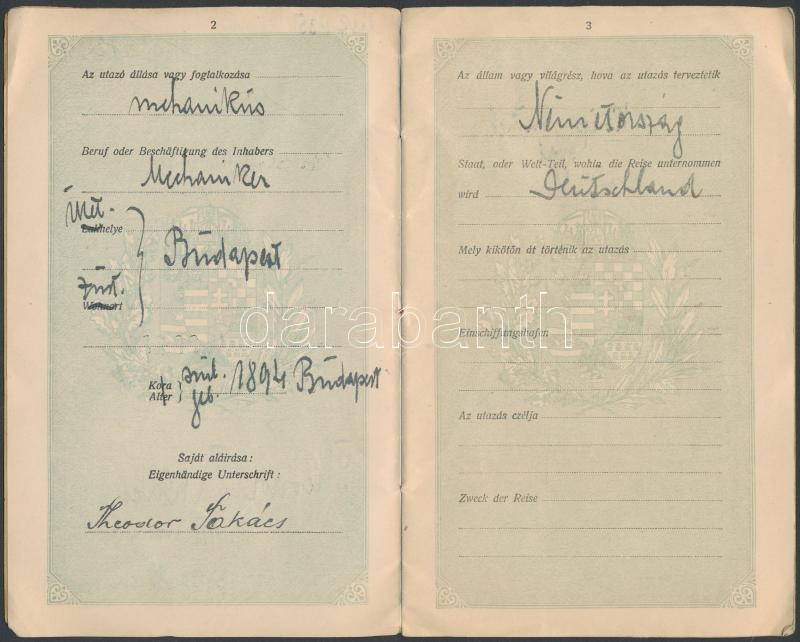 2
Az utazó állása vagy foglalkozása
mechanikus
Beruf oder Beschäftigung des Inhabers
Mechaniker
Ill.
Lakhelye
Budapest
Zust.
Wohnort
Kora
Alter
szül.
geb.
1894 Budapest
Saját aláírása:
Eigenhändige Unterschrift:
Theodor Takács
3
Az állam vagy világrész, hova az utazás terveztetik
Németország
Staat, oder Welt-Teil, wohin die Reise unternommen
wird Deutschland
Mely kikötőn át történik az utazás
Einschiffungshafen
Az utazás czélja
Zweck der Reise
darabanth